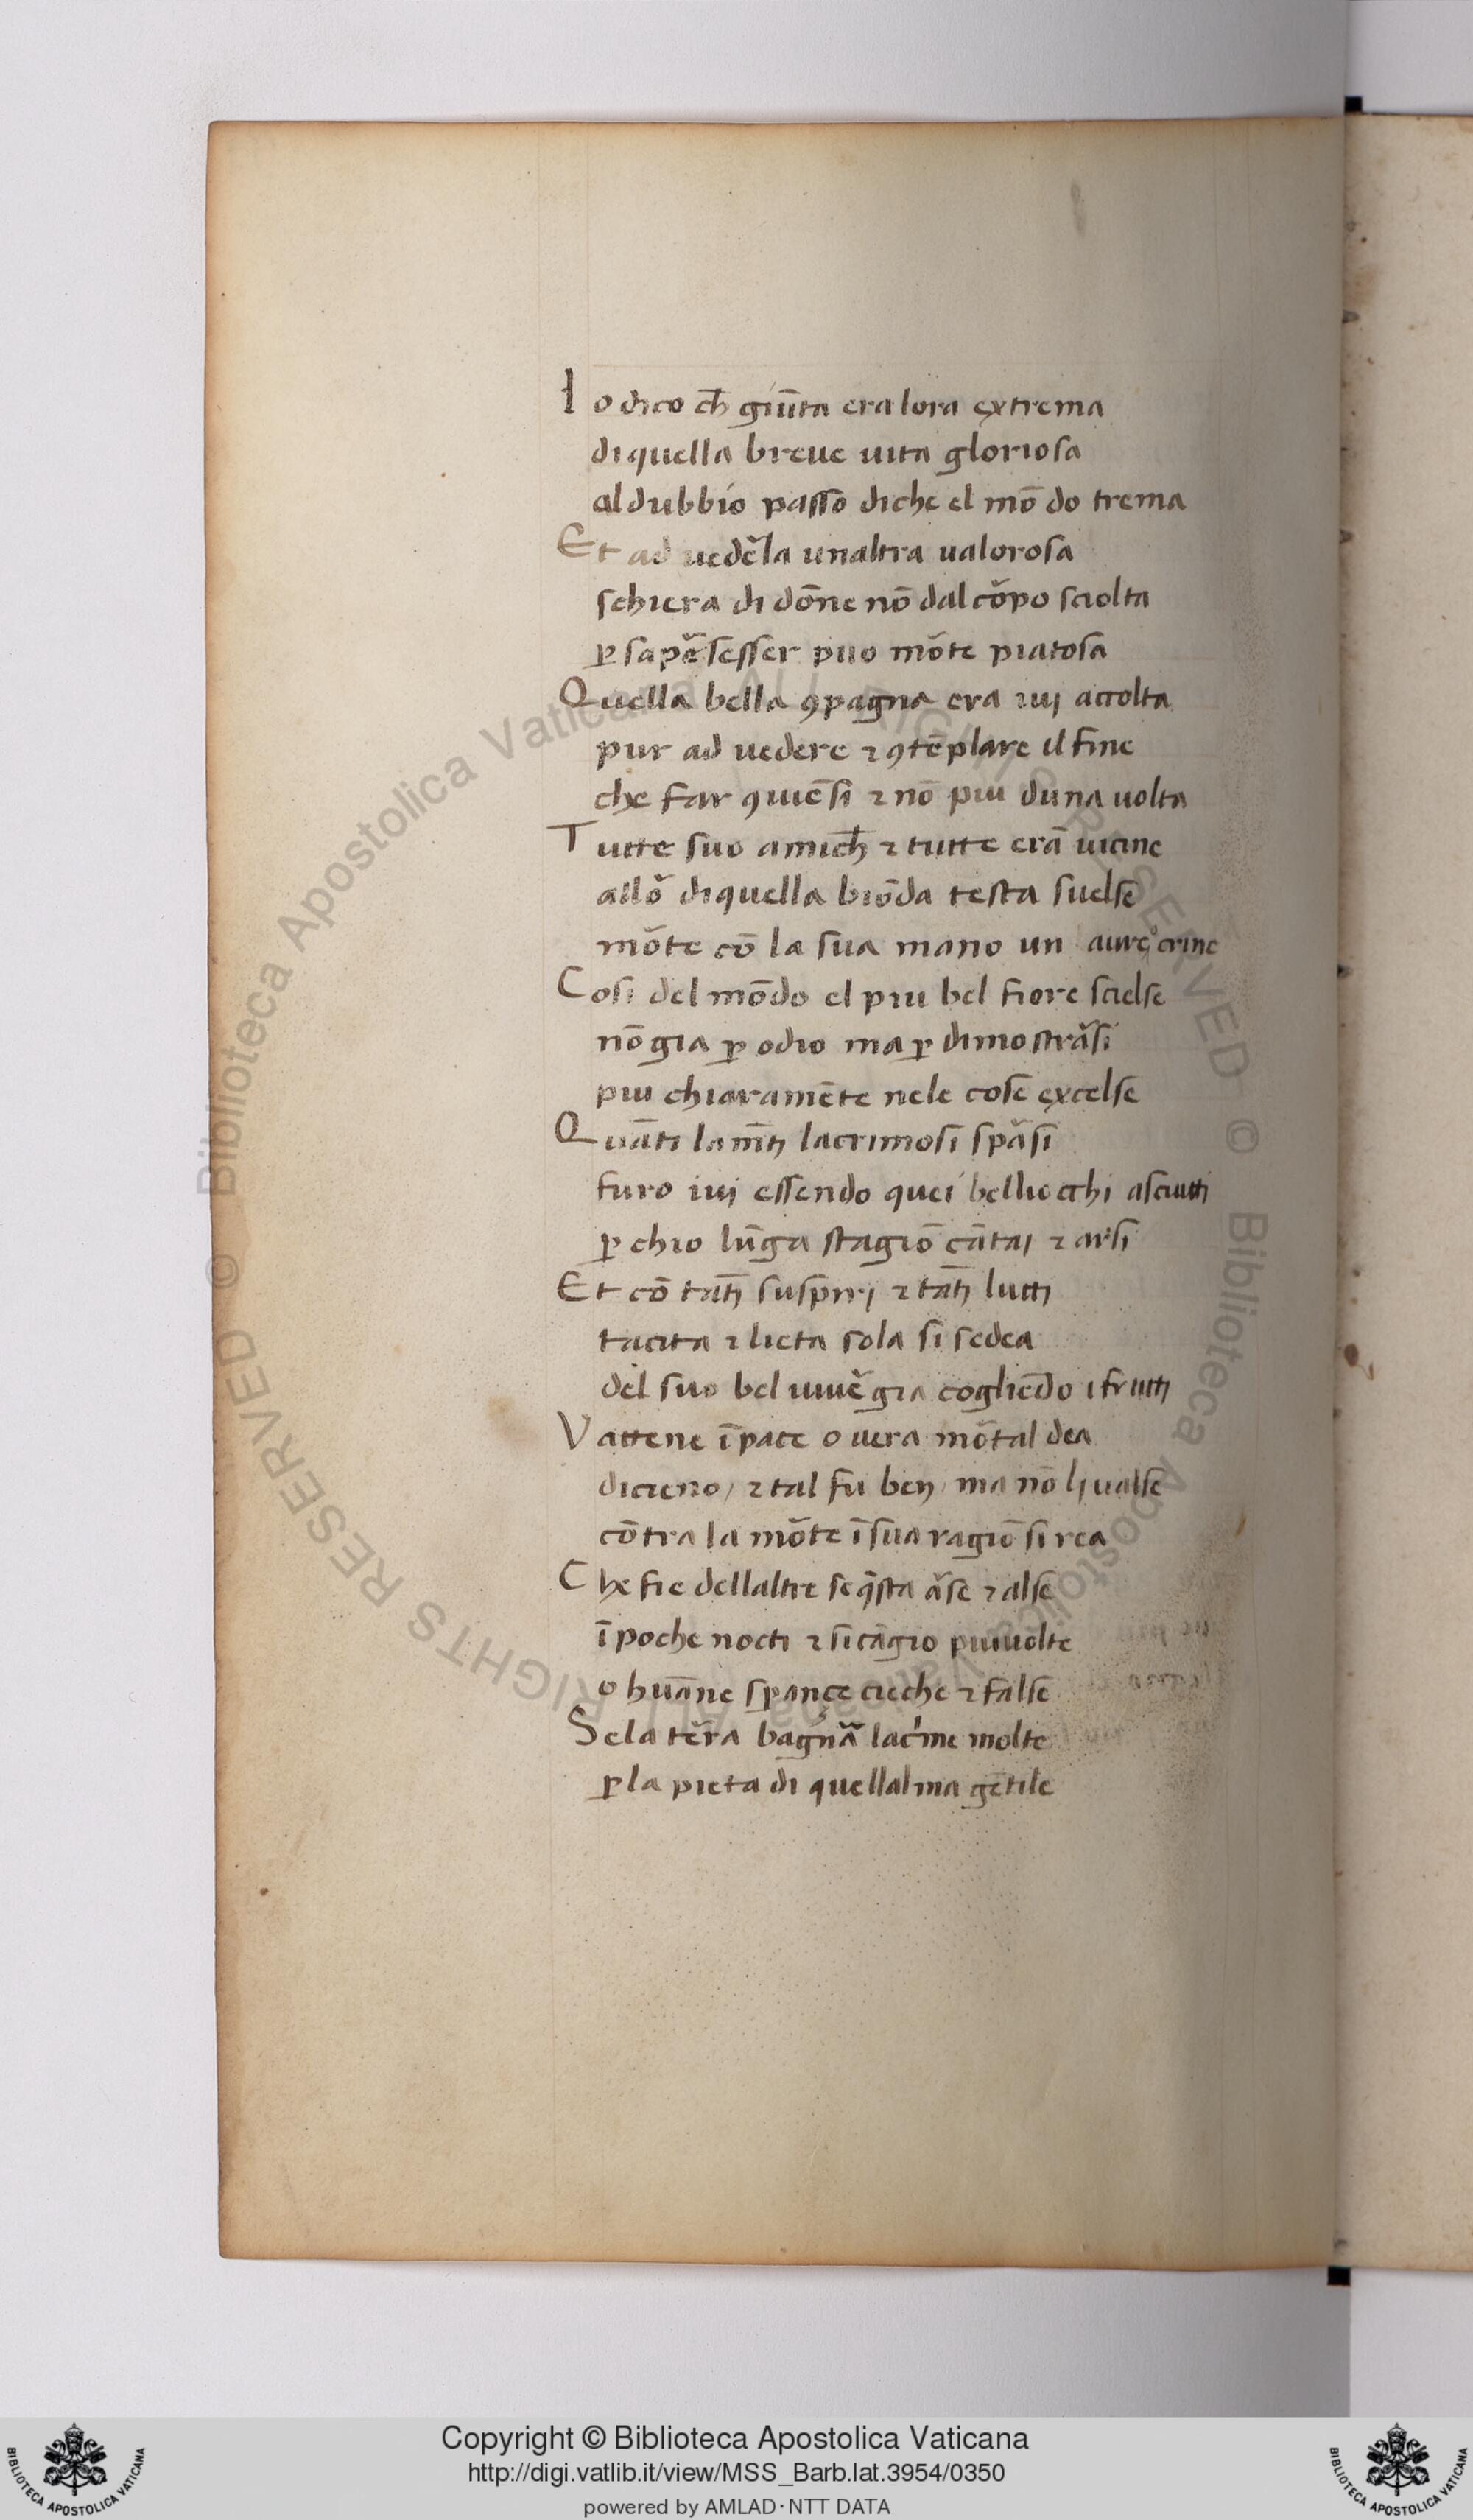 Io dico ch̄ giūta era lora extrema
di quella breue uita gloriosa
al dubbio passo di che el mōdo trema
Et ad uedẽla unaltra ualorosa
schiera di dōne nō dal cõpo sciolta
ꝑ sapẽ sesser puo mõte piatosa
Quella bella ꝯpagna era iuj accolta
pur ad uedere ⁊ ꝯtēplare il fine
che far ꝯuiēsi ⁊ nō piu duna uolta
Tutte suo amich̄ ⁊ tutte erā uicine
allõ di quella biōda testa suelse
mõte cō la sua mano un aureo crine
Cosi del mōdo el piu bel fiore scielse
nō gia ꝑ odio ma ꝑ dimostrãsi
piu chiaramēte nele cose excelse
Quāti lamēti lacrimosi spãsi
furo iuj essendo quei belli occhi asciutti
ꝑ chio lūga stagiō cātaj ⁊ arsi
Et cō tāti suspirj ⁊ tāti lutti
tacita ⁊ lieta sola si sedea
del suo bel uiuẽ gia cogliēdo i frutti
Vattene ī pace o uera mõtal dea
dicieno / ⁊ tal fu ben / ma nō lj ualse
cōtra la mõte ī sua ragiō si rea
Che fie dellaltre se q̄sta ãse ⁊ alse
ī poche nocti ⁊ si cāgio piu uolte
o huāne spançe cieche ⁊ false
Se la tẽra bagnā lac'me molte
ꝑ la pieta di quellalma gētile
© Biblioteca Apostolica Vaticana ALL RIGHTS RESERVED © Biblioteca Apostolica Vaticana ALL RIGHTS RESERVED
Copyright © Biblioteca Apostolica Vaticana
http://digi.vatlib.it/view/MSS_Barb.lat.3954/0350
powered by AMLAD·NTT DATA
BIBLIOTECA APOSTOLICA VATICANA
BIBLIOTECA APOSTOLICA VATICANA